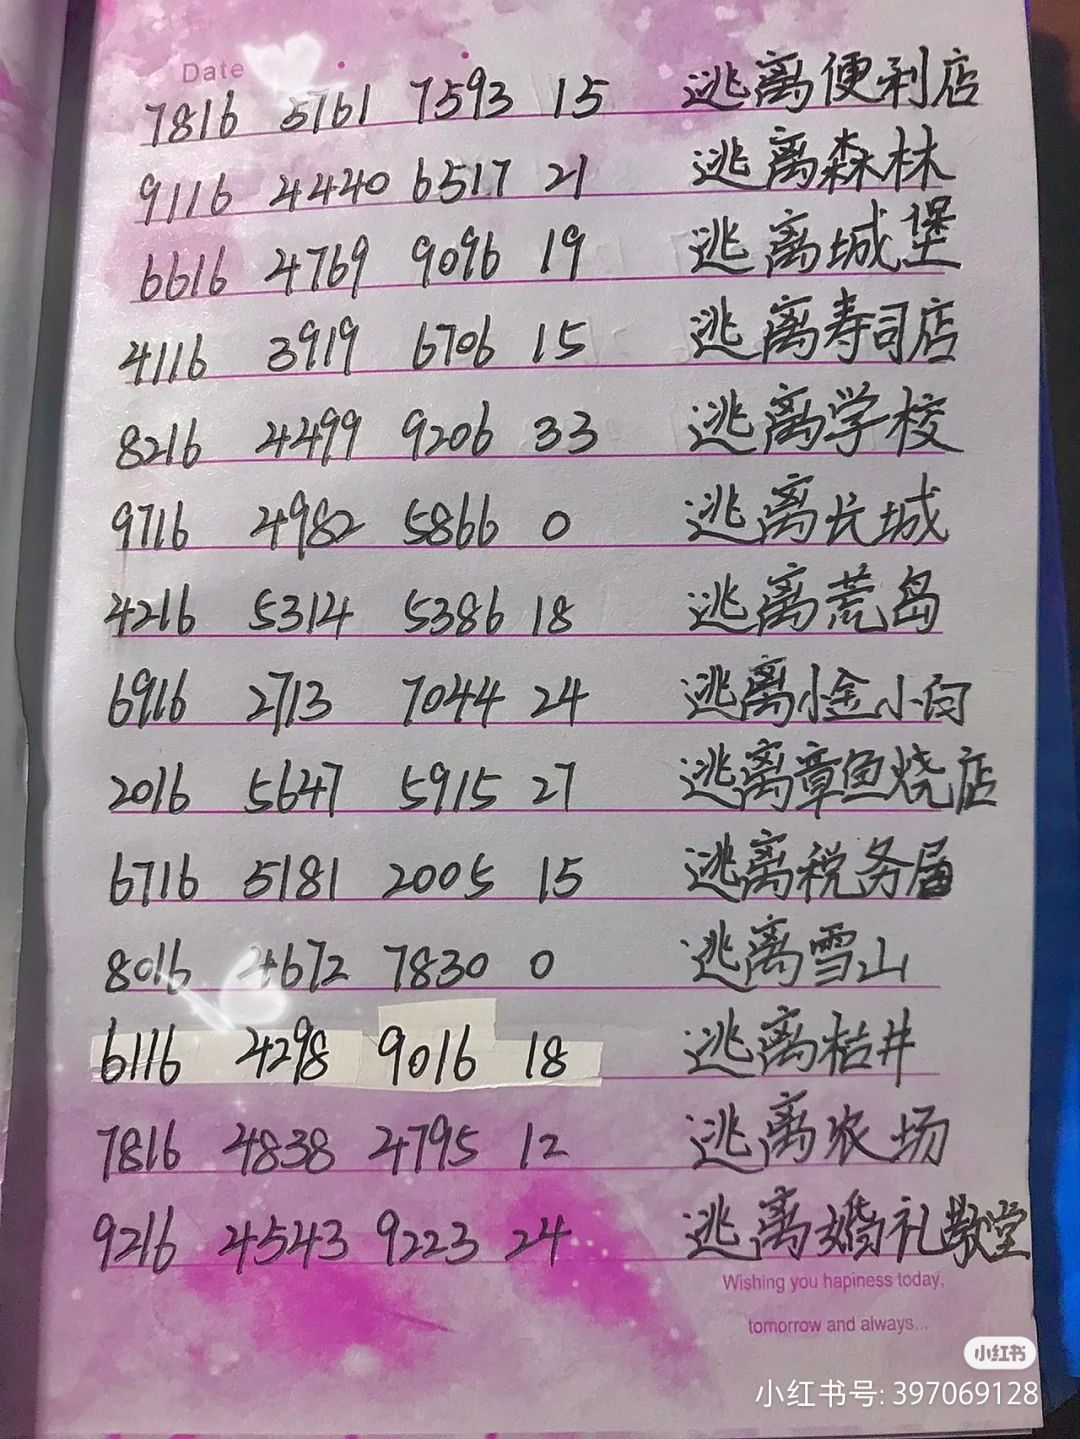 Date
7816 5761 7593 15 逃离便利店
9116 4440 6517 21 逃离森林
6616 4769 9096 19 逃离城堡
4116 3919 6706 15 逃离寿司店
8216 4499 9206 33 逃离学校
9716 4982 5866 0 逃离长城
4216 5314 5386 18 逃离荒岛
6916 2713 7044 24 逃离小金小向
2016 5647 5915 27 逃离章鱼烧店
6716 5181 2005 15 逃离税务届
8016 4672 7830 0 逃离雪山
6116 4298 9016 18 逃离枯井
7816 4838 4795 12 逃离农场
9216 4543 9223 24 逃离婚礼教堂
Wishing you hapiness today,
tomorrow and always...
小红书
小红书号: 397069128